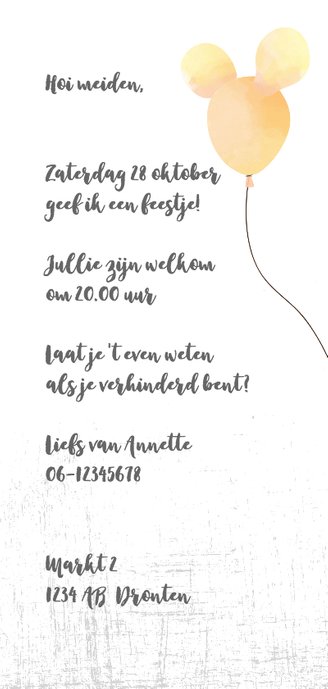 Hoi meiden,
Zaterdag 28 oktober
geef ik een feestje!
Jullie zijn welkom
om 20.00 uur
Laat je 't even weten
als je verhinderd bent?
Liefs van Annette
06-12345678
Markt 2
1234 AB Dronten